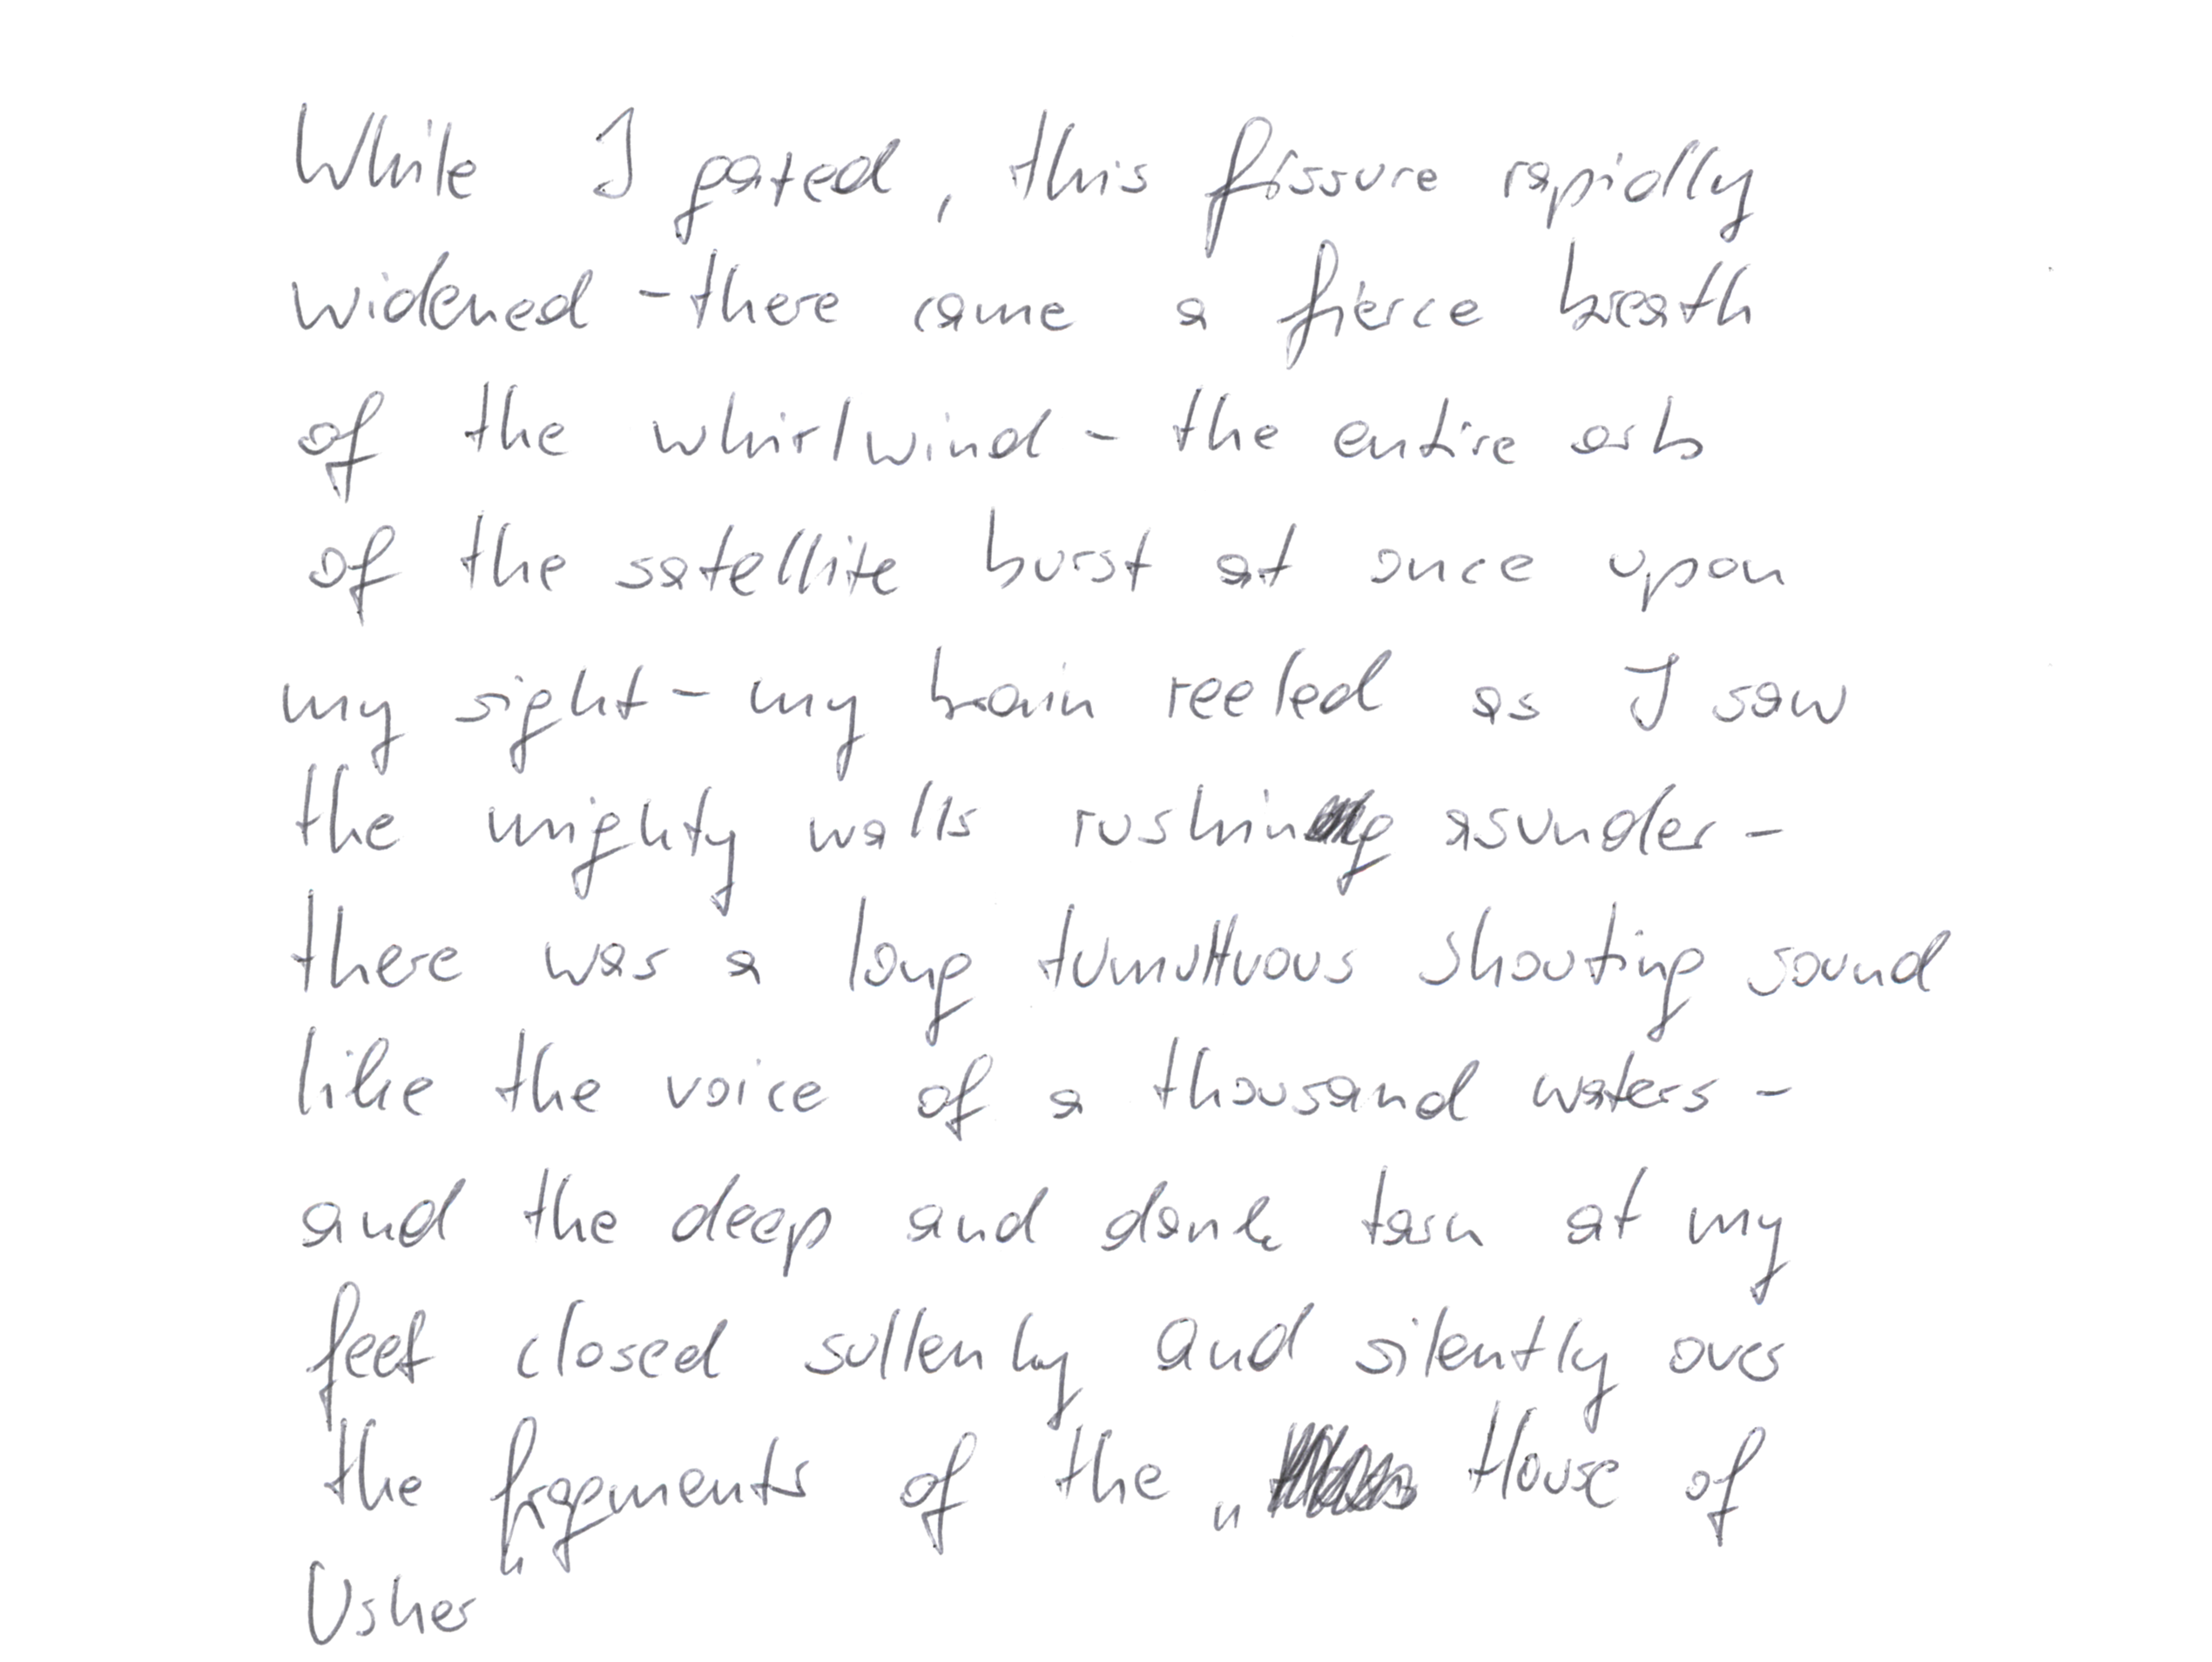 While I gazed, this fissure rapidly
widened - there came a fierce breath
of the whirlwind - the entire orb
of the satellite burst at once upon
my sight - my brain reeled as I saw
the mighty walls rushing asunder -
there was a long tumultuous shouting sound
like the voice of a thousand waters -
and the deep and dank tarn at my
feet closed sullenly and silently over
the fragments of the „House of
Usher“